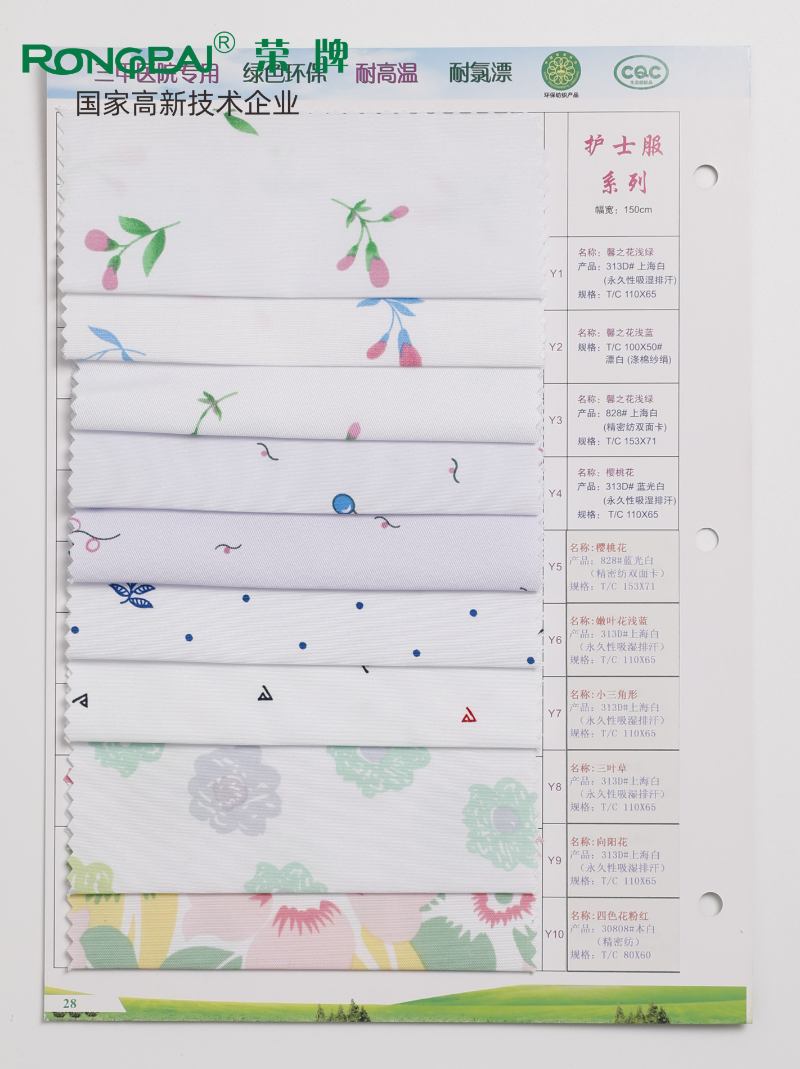 RONGPAI® 荣牌
三甲医院专用 绿色环保 耐高温 耐氯漂
国家高新技术企业
环保纺织产品
CQC
护士服
系列
幅宽：150cm
Y1
名称：馨之花浅绿
产品：313D# 上海白
(永久性吸湿排汗)
规格：T/C 110X65
Y2
名称：馨之花浅蓝
规格：T/C 100X50#
漂白 (涤棉纱绢)
Y3
名称：馨之花浅绿
产品：828# 上海白
(精密纺双面卡)
规格：T/C 153X71
Y4
名称：樱桃花
产品：313D# 蓝光白
(永久性吸湿排汗)
规格： T/C 110X65
Y5
名称:樱桃花
产品：828#蓝光白
（精密纺双面卡）
规格：T/C 153X71
Y6
名称:嫩叶花浅蓝
产品：313D#上海白
（永久性吸湿排汗）
规格：T/C 110X65
Y7
名称:小三角形
产品：313D#上海白
（永久性吸湿排汗）
规格：T/C 110X65
Y8
名称:三叶草
产品：313D#上海白
（永久性吸湿排汗）
规格：T/C 110X65
Y9
名称:向阳花
产品：313D#上海白
（永久性吸湿排汗）
规格：T/C 110X65
Y10
名称:四色花粉红
产品：30808#本白
（精密纺）
规格：T/C 80X60
28